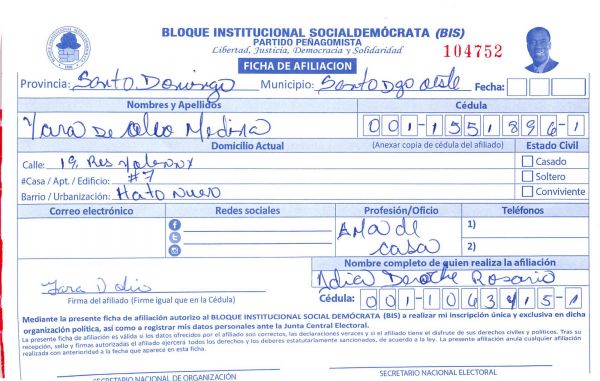 BLOQUE INSTITUCIONAL SOCIALDEMÓCRATA (BIS)
PARTIDO PEÑAGOMISTA
Libertad, Justicia, Democracia y Solidaridad
104752
FICHA DE AFILIACION
Provincia: Santo Domingo Municipio: Santo Dgo oeste Fecha:
Nombres y Apellidos Cédula
Yara De Oleo Medina 001-1551896-1
Domicilio Actual (Anexar copia de cédula del afiliado) Estado Civil
Calle: 19 Res Casado
#Casa / Apt. / Edificio: #7 Soltero
Barrio / Urbanización: Hato Nuevo Conviviente
Correo electrónico Redes sociales Profesión/Oficio Teléfonos
Ama de 1)
casa 2)
Nombre completo de quien realiza la afiliación
Rosario
Firma del afiliado (Firme igual que en la Cédula) Cédula: 001-1063415-1
Mediante la presente ficha de afiliación autorizo al BLOQUE INSTITUCIONAL SOCIAL DEMÓCRATA (BIS) a realizar mi inscripción única y exclusiva en dicha
organización política, así como a registrar mis datos personales ante la Junta Central Electoral.
La presente ficha de afiliación es válida si los datos ofrecidos por el afiliado son correctos, las declaraciones veraces y si el afiliado tiene el disfrute de sus derechos civiles y políticos. Tras su
recepción, sello y firmas autorizadas el afiliado ejercerá todos los derechos y los deberes estatutariamente sancionados, de acuerdo a la ley. La presente afiliación anula cualquier afiliación
realizada con anterioridad a la fecha que aparece en esta ficha.
SECRETARIO NACIONAL DE ORGANIZACIÓN SECRETARIO NACIONAL ELECTORAL